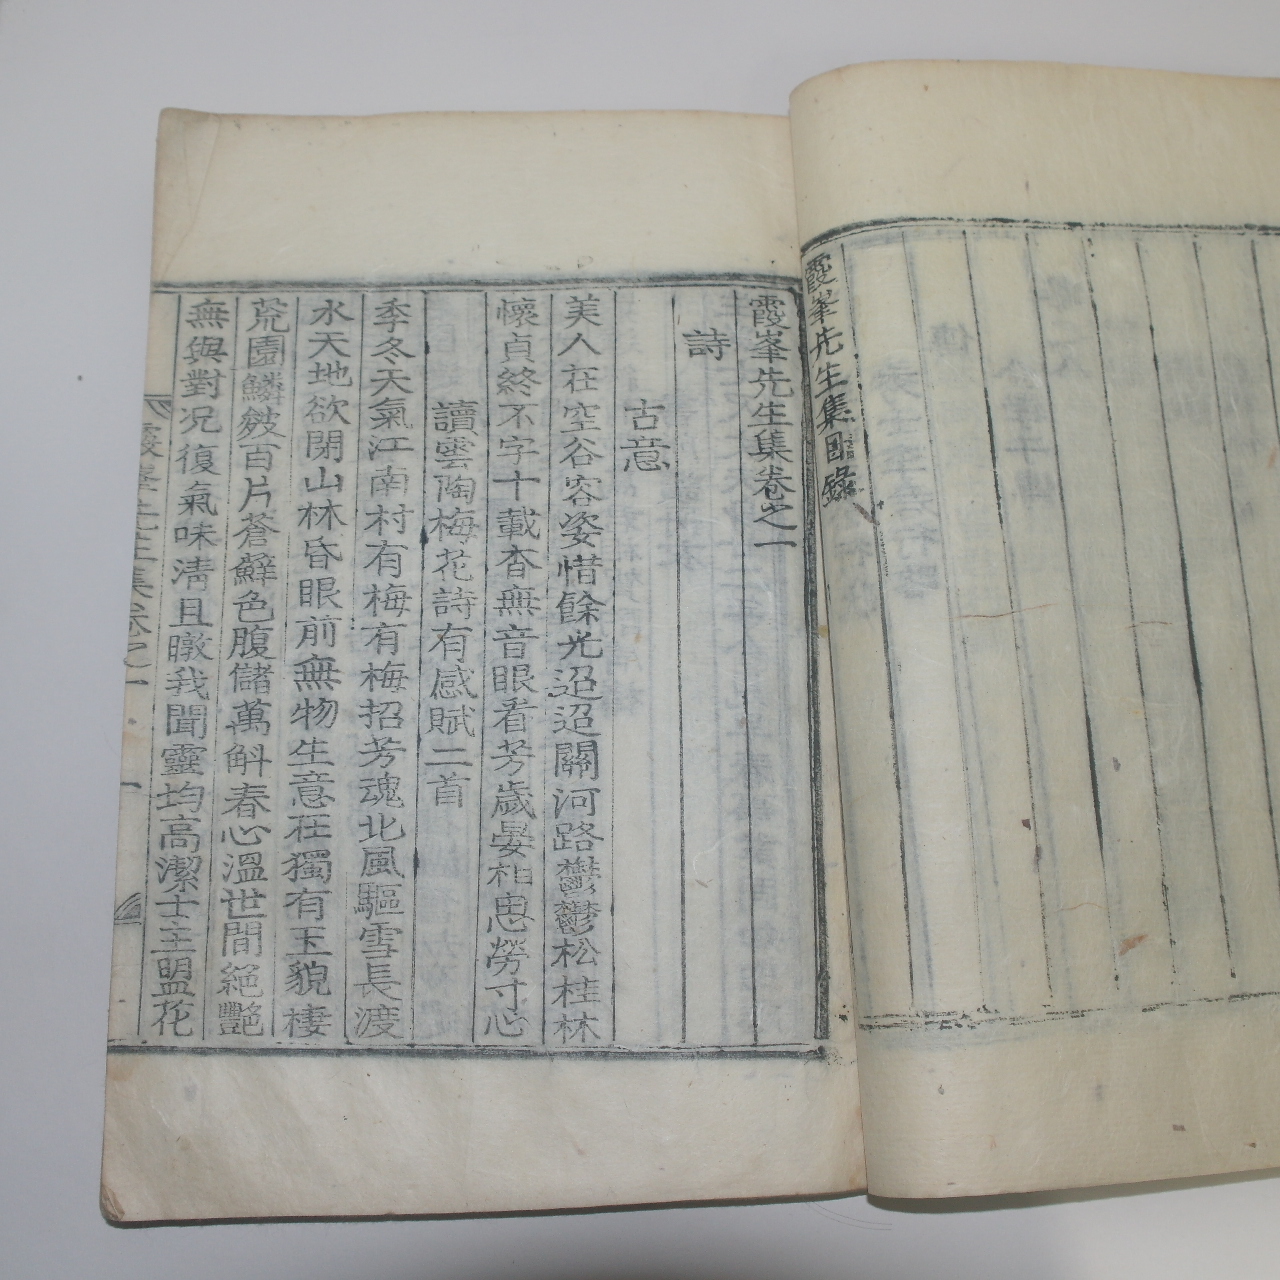 霞峯先生集目錄
霞峯先生集卷之一
詩
古意
美人在空谷容姿惜餘光迢迢關河路鬱鬱松桂林
懷貞終不字十載杳無音眼看芳歲晏相思勞寸心
讀雲陶梅花詩有感賦二首
季冬天氣江南村有梅有梅招芳魂北風驅雪長渡
水天地欲閉山林昏眼前無物生意在獨有玉貌棲
荒園鱗皴百片蒼蘚色腹儲萬斛春心溫世間絕艷
無與對况復氣味淸且暾我聞靈均高潔士主盟花
霞峯先生集卷之一 一